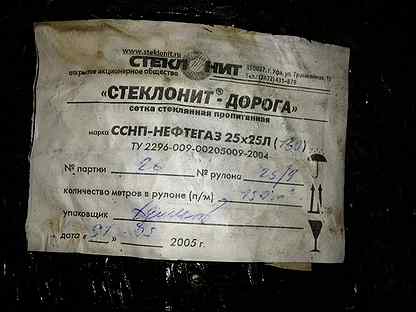 www.steklonit.ru
СТЕКЛОНИТ
открытое акционерное общество
450027, г. Уфа, ул. Трамвайная, 15
Тел.: (3472)
«СТЕКЛОНИТ® - ДОРОГА»
сетка стеклянная пропитанная
марка ССНП-НЕФТЕГАЗ 25х25Л (130)
ТУ 2296-009-00205009-2004
№ партии 26 № рулона 25/1
количество метров в рулоне (п/м) 150
упаковщик
дата « » 2005 г.